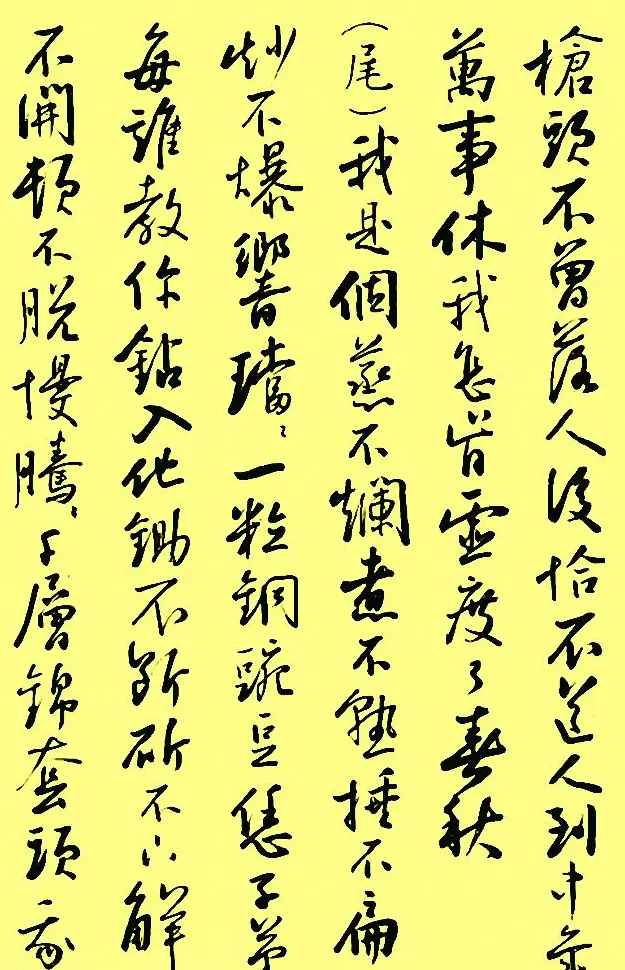 槍頭不曾落人後恰不道人到中年
萬事休我怎肯虛度了春秋
(尾)我是個蒸不爛煮不熟捶不扁
炒不爆響璫々一粒銅豌豆恁子弟
每誰教你鈷入他鋤不斷斫不下解
不開頓不脫慢騰々千層錦套頭我